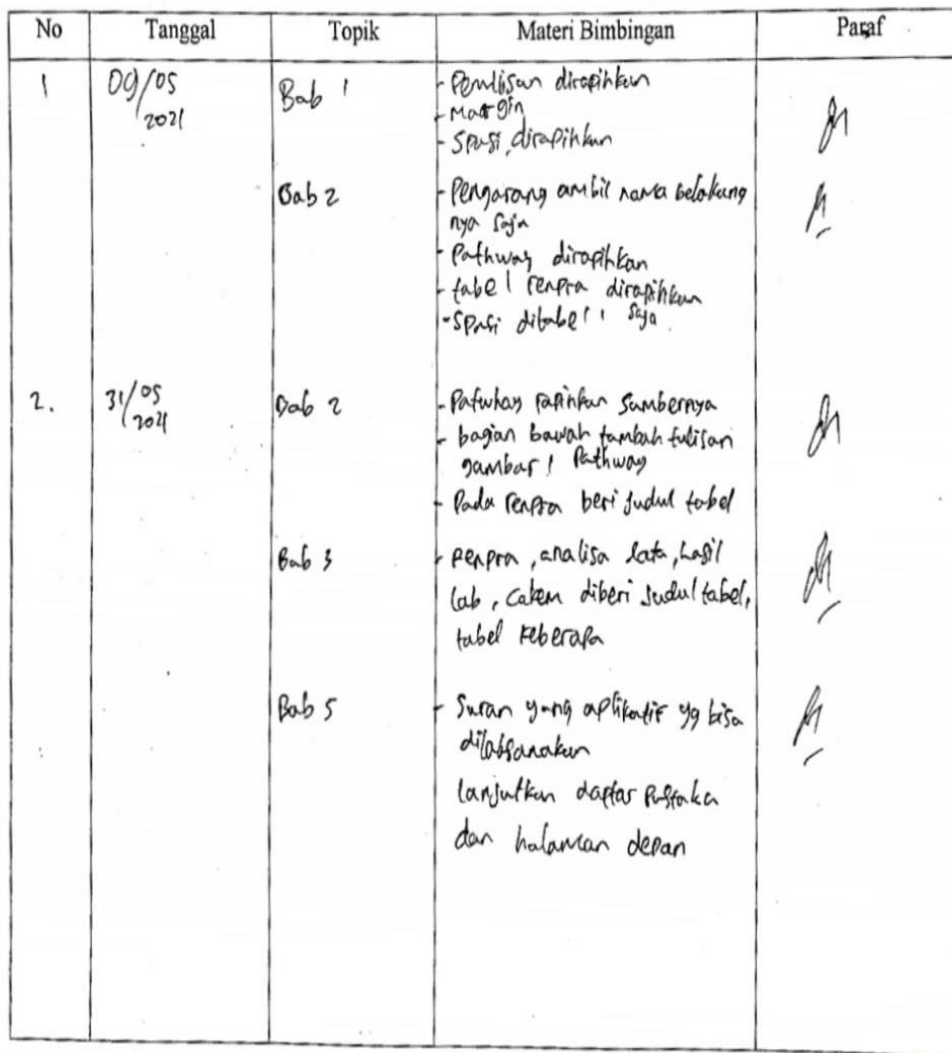 No Tanggal Topik Materi Bimbingan Paraf
1 09/05 2021 Bab 1 - Penulisan dirapihkan
- Margin
- Spasi, dirapihkan
Bab 2 - Pengarang ambil nama belakang
nya saja
- Pathway dirapihkan
- tabel renpra dirapihkan
- Spasi ditabel 1 saja
2. 31/05 2021 Bab 2 - Patwhay rapihkan sumbernya
- bagian bawah tambah tulisan
gambar 1 Pathway
- Pada renpra beri judul tabel
Bab 3 - renpra, analisa data, hasil
lab, catem diberi judul tabel,
tabel keberapa
Bab 5 - Saran yang aplikatif yg bisa
dilaksanakan
lanjutkan daftar Pustaka
dan halaman depan